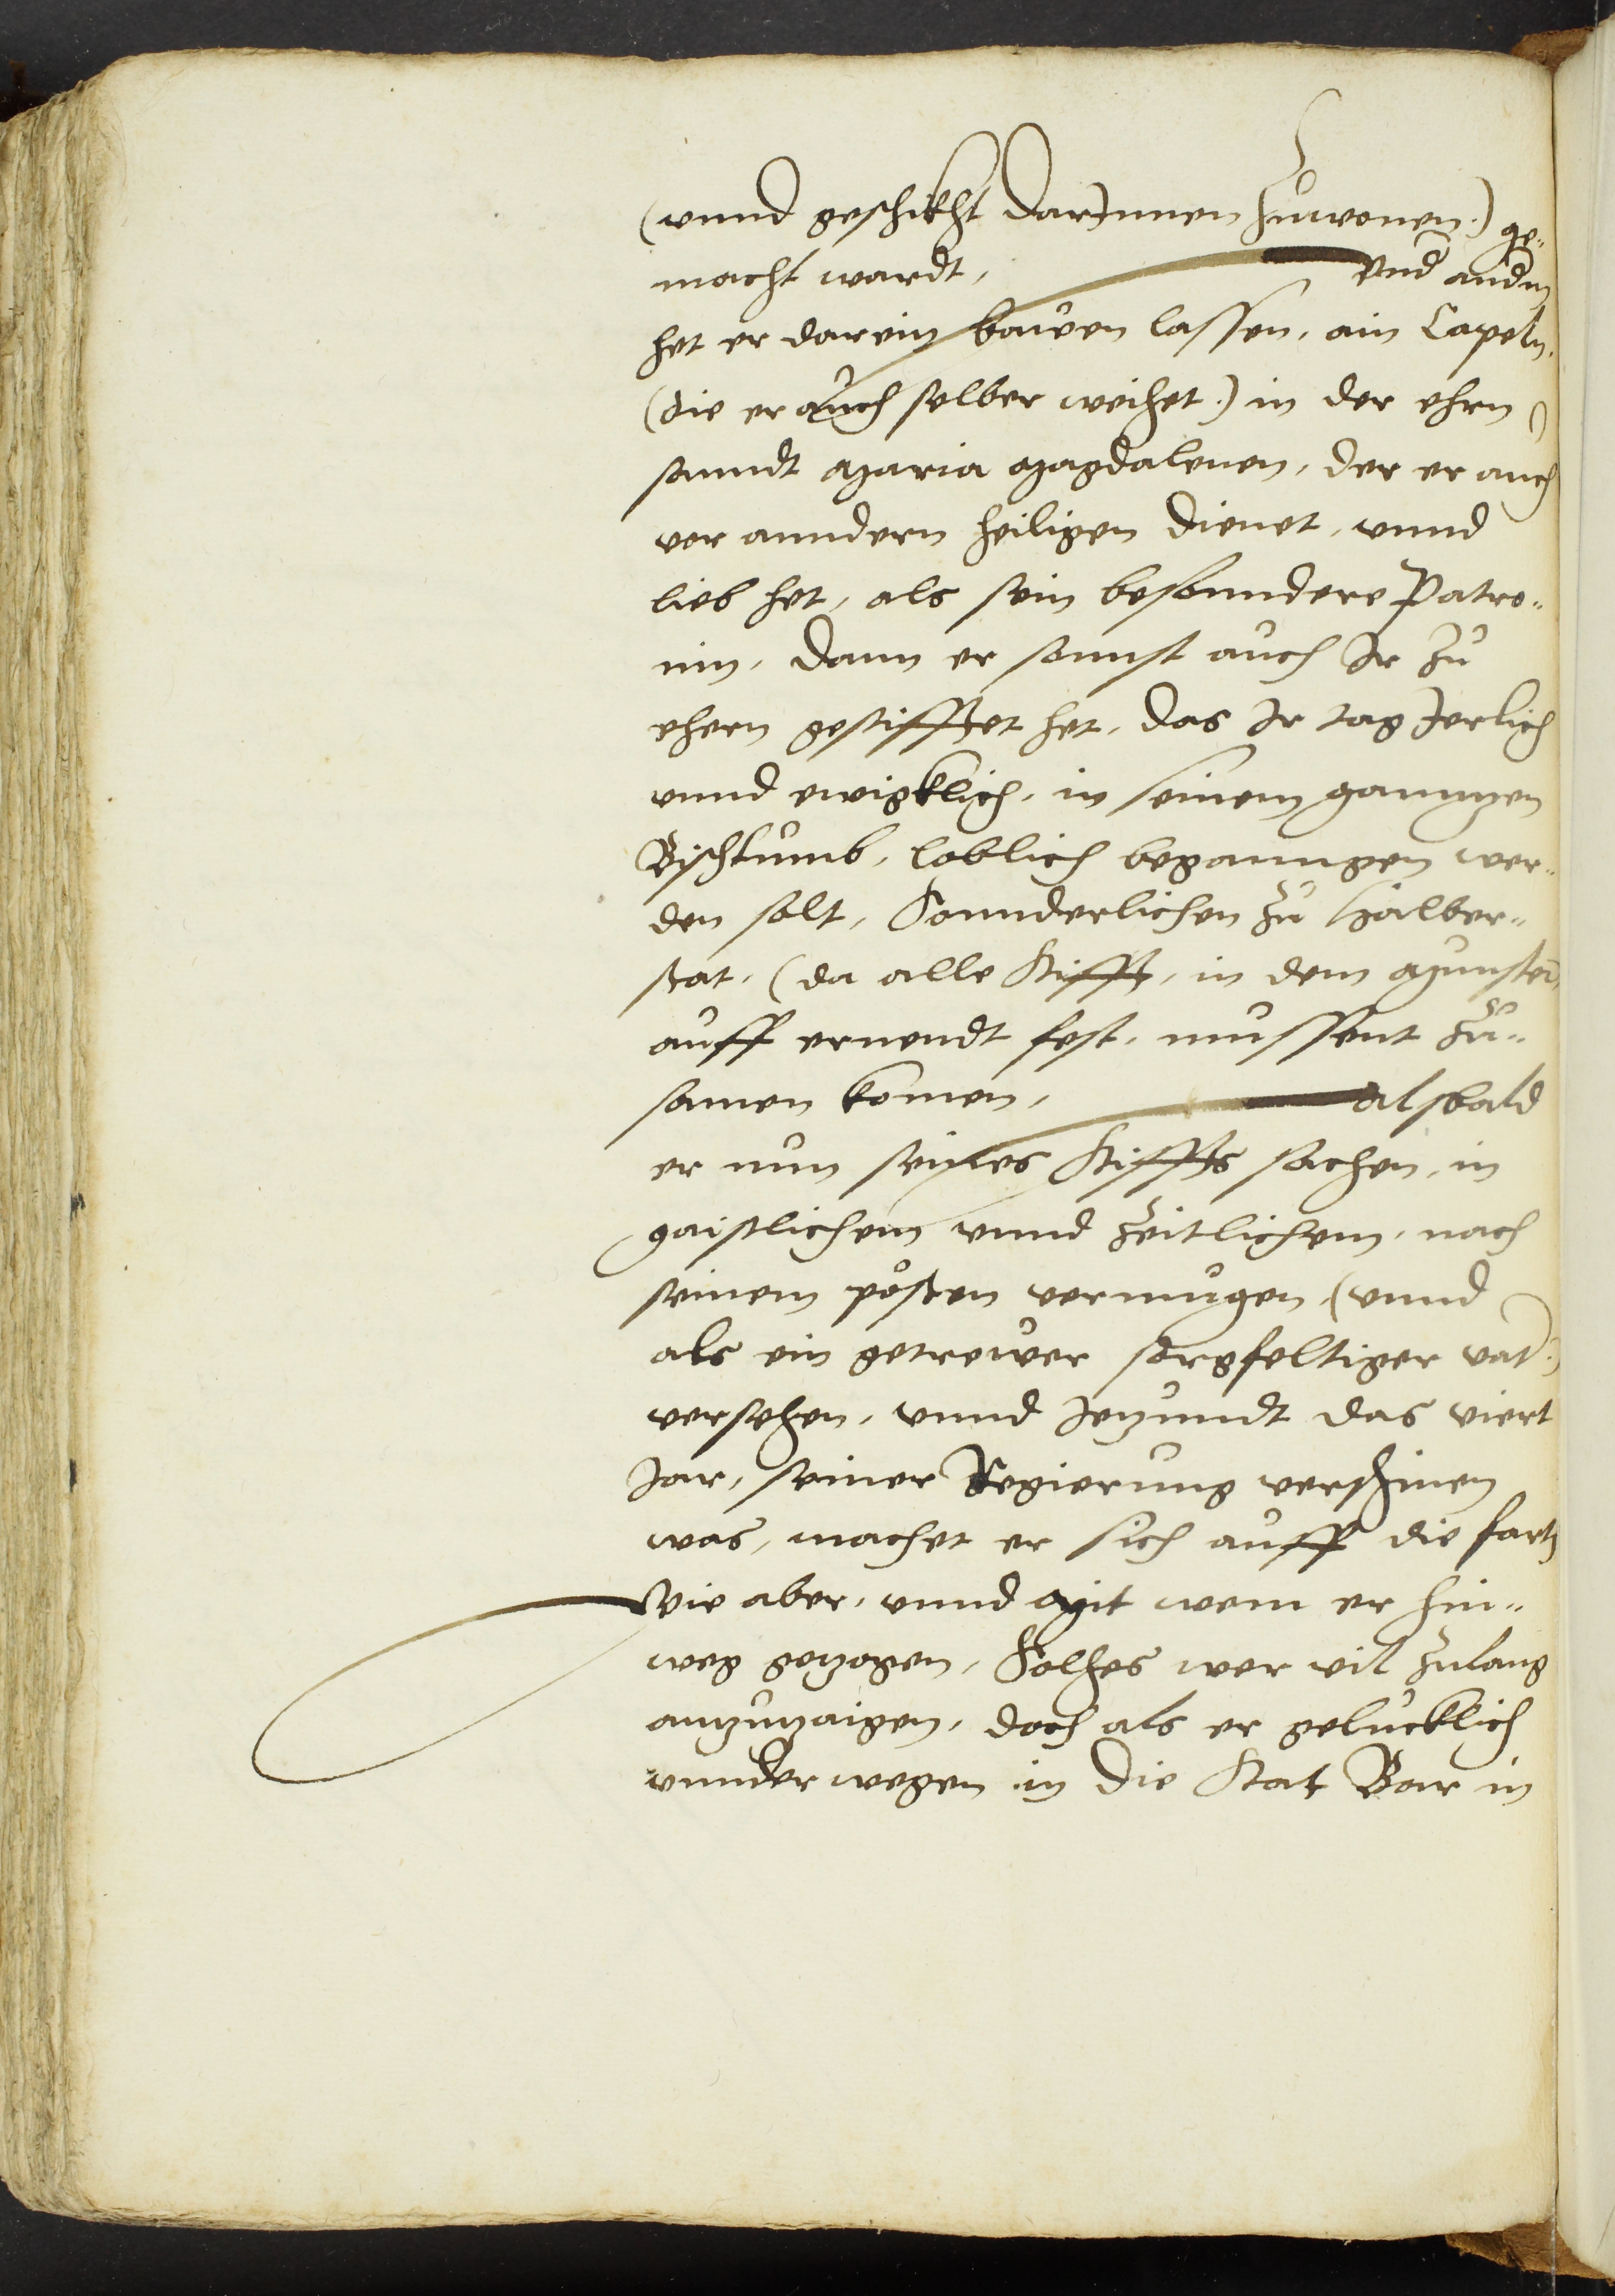 (vnnd geschikht darInnen zuwonen.) ge¬
macht wardt, Vnd andm
het er darein bawen lassen, ain Capeln,
(die er auch selber weihet.) in der ehrn
sanndt Maria Magdalenen, der er auch
vor anndern heiligen dienet, vnnd
lieb het, als sein besonndere Patro¬
nin, Dann er sonnst auch Ir zu
ehern gestifftet het, das Ir tag Jerlich
vnnd ewigklich, in seinem ganntzen
Bischtumb, loblich beganngen wer¬
den solt, Sonnderlichen zu Halber¬
stat, (da alle Stifft, in dem Munster,
auff ernendt fest, mussent zu¬
samen komen, Alsbald
er nun seines Stiffts sachen, in
gaistlichem vnnd zeitlichem, nach
seinem posten vermugen, (vnnd
als ein getrewer sorgfeltiger vat.)
versehen, vnnd Jetzundt das viert
Jar, seiner Regierung verschinen
was, machet er sich auff die fart,
Wie aber, vnnd Mit wem er hin¬
weg getzogen, Solhes wer vil zulang
antzutzaigen, doch als er gelucklich
vnnder wegen in die Stat Bar in